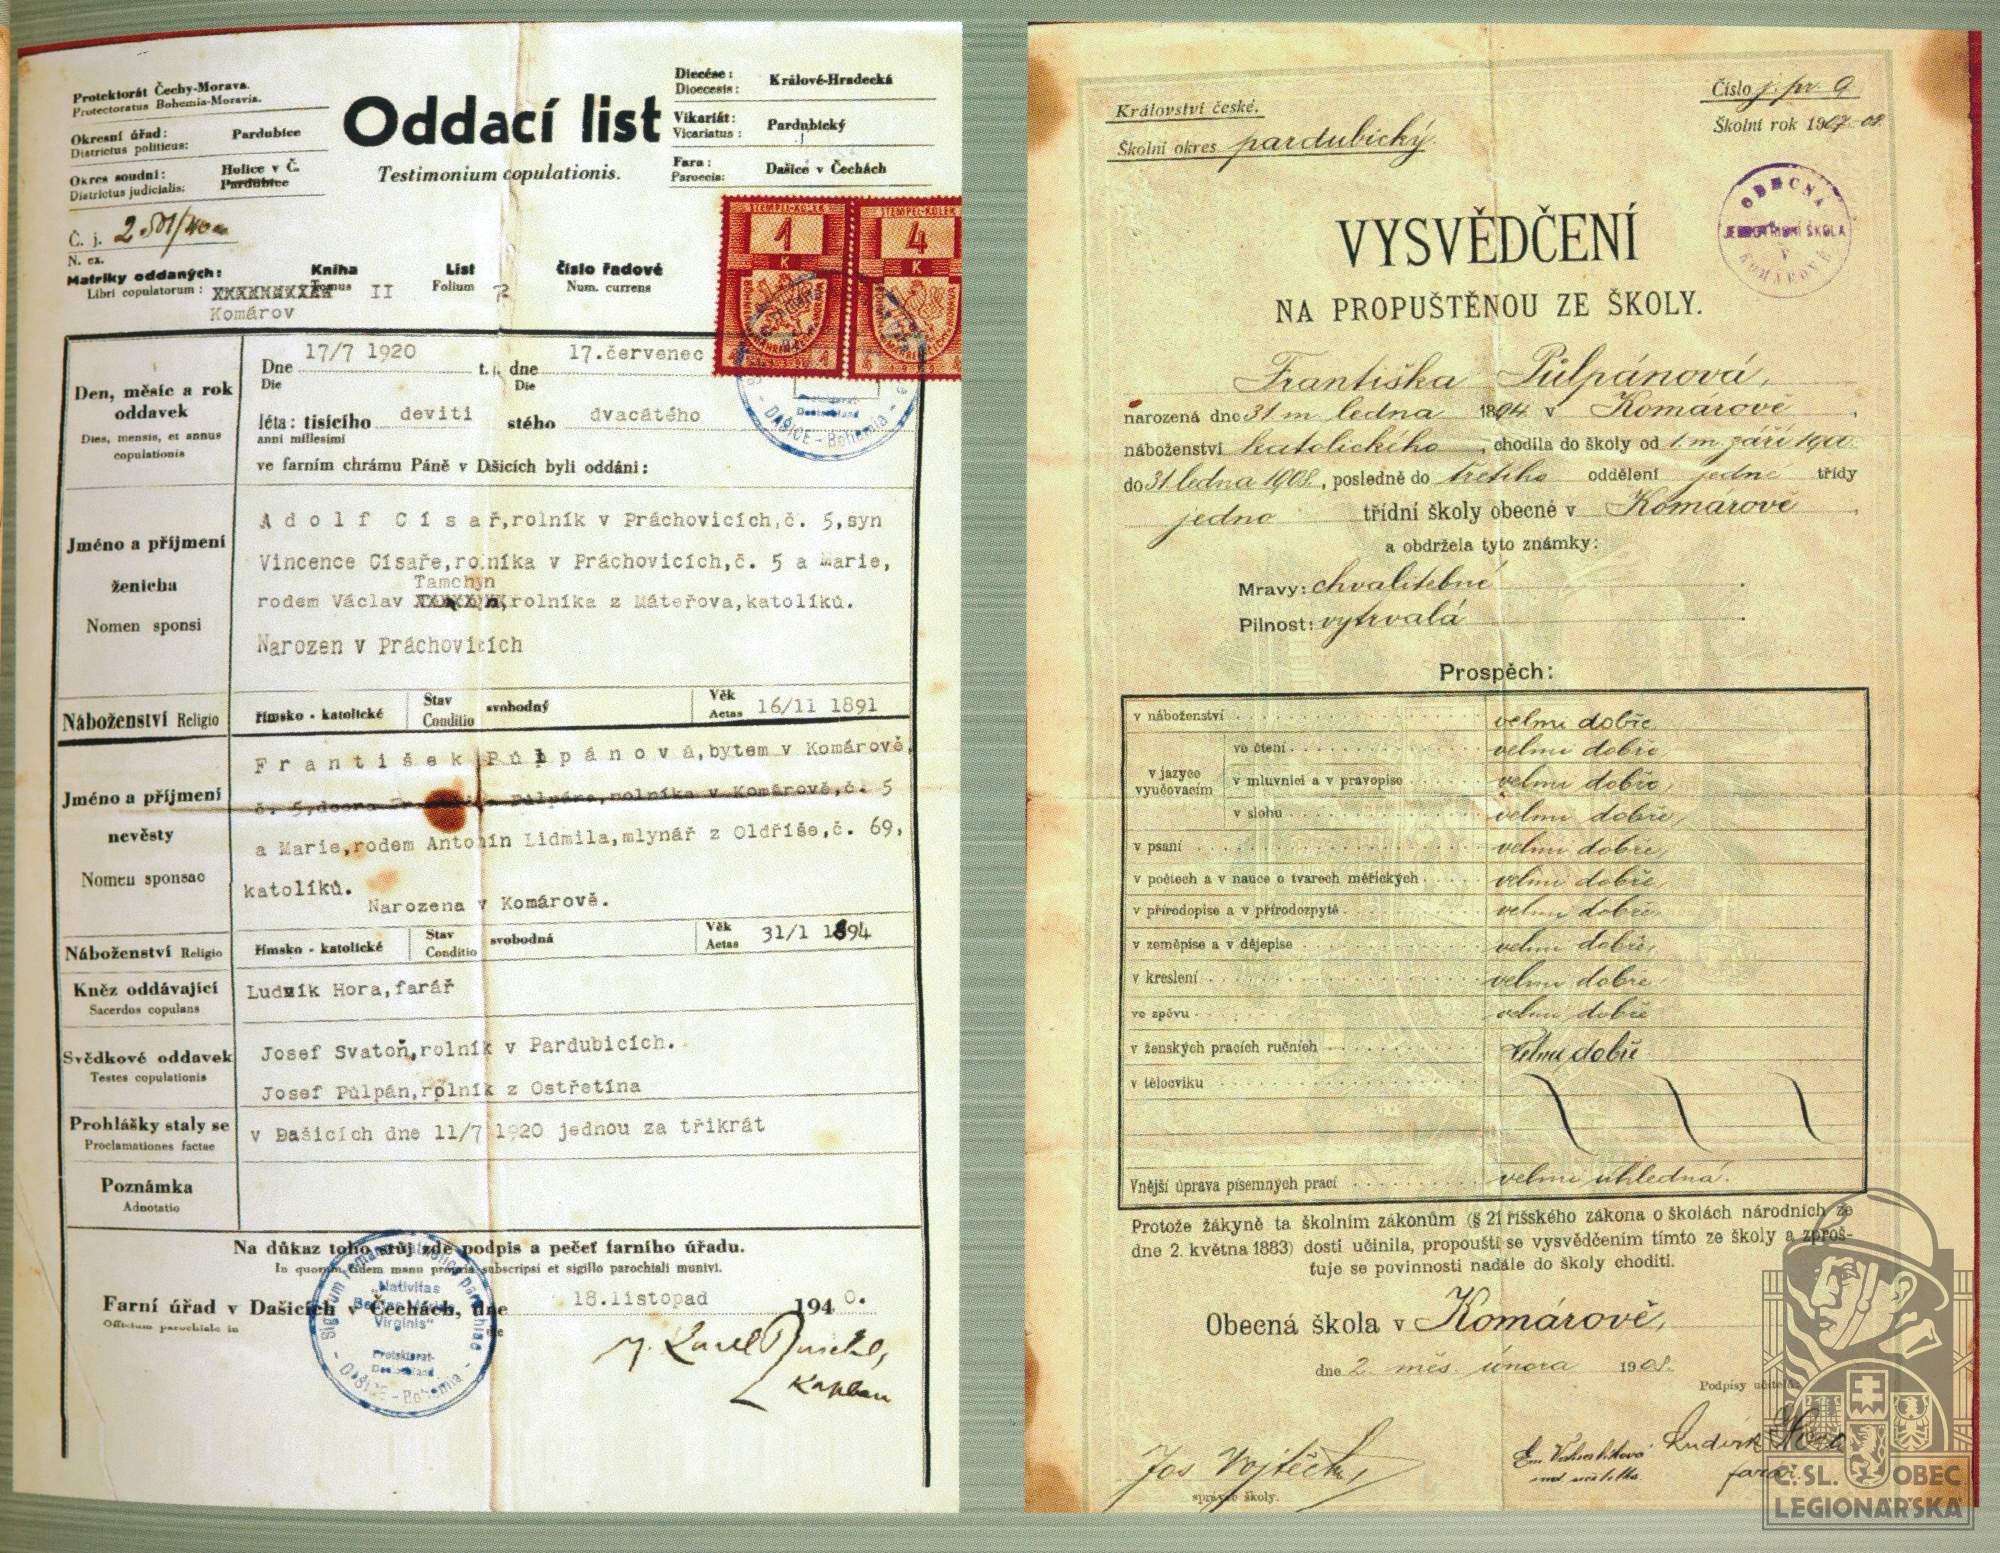 Protektorát Čechy-Morava.
Protectoratus Bohemia-Moravia.
Okresní úřad: Pardubice
Districtus politicus:
Okres soudní: Holice v Č.
Districtus judicialis: Pardubice
Č. j. 2501/40
N. ex.
Oddací list
Testimonium copulationis.
Diecése: Králové-Hradecká
Dioecesis:
Vikariát: Pardubický
Vicariatus:
Fara: Dašice v Čechách
Paroecia:
STEMPEL-KOLEK STEMPEL-KOLEK
1 4
K K
Matriky oddaných: Kniha List Číslo řadové
Libri copulatorum: Tomus II Folium Num. currens
Komárov
Den, měsíc a rok oddavek
Dies, mensis, et annus copulationis
Dne 17/7 1920 t. r. dne 17.červenec
Die Die
léta: tisícího devítí stého dvacátého
anni millesimi
ve farním chrámu Páně v Dašicích byli oddáni:
DAŠICE - Bohemia
Jméno a příjmení
ženicha
Nomen sponsi
Adolf Císař,rolník v Práchovicích,č. 5,syn
Vincence Císaře,rolníka v Práchovicích,č. 5 a Marie,
Tamchyn
rodem Václav rolníka z Máteřova,katolíků.
Narozen v Práchovicích
Náboženství Religio římsko - katolické Stav Conditio svobodný Věk Aetas 16/11 1891
Jméno a příjmení
nevěsty
Nomen sponsae
František Půlpánová,bytem v Komárově,
č. 5,dcera Půlpána,rolníka v Komárově,č. 5
a Marie,rodem Antonín Lidmila,mlynář z Oldříše,č. 69,
katolíků.
Narozena v Komárově.
Náboženství Religio římsko - katolické Stav Conditio svobodná Věk Aetas 31/1 1894
Kněz oddávající Ludvík Hora,farář
Sacerdos copulans
Svědkové oddavek Josef Svatoň,rolník v Pardubicích.
Testes copulationis Josef Půlpán,rolník z Ostřetína
Prohlášky staly se v Dašicích dne 11/7 1920 jednou za třikrát
Proclamationes factae
Poznámka
Adnotatio
Na důkaz toho stůj zde podpis a pečeť farního úřadu.
In quorum fidem manu propria subscripsi et sigillo parochiali munivi.
Farní úřad v Dašicích v Čechách, dne 18.listopad 1940.
Officium parochiale in die
Nativitas
Virginis"
Protektorat-
Deutschland
DAŠICE - Bohemia
Kaplan
Království české.
Školní okres pardubický.
Číslo j. pr. 9
Školní rok 1907-08.
OBECNÁ
JEDNOTŘÍDNÍ ŠKOLA
V
KOMÁROVĚ
VYSVĚDČENÍ
NA PROPUŠTĚNOU ZE ŠKOLY.
Františka Půlpánová,
narozená dne 31 m. ledna 1894 v Komárově,
náboženství katolického, chodila do školy od 1. m. září 1900.
do 31 ledna 1908, posledně do třetího oddělení jedné třídy
jedno třídní školy obecné v Komárově
a obdržela tyto známky:
Mravy: chvalitebné
Pilnost: vytrvalá
Prospěch:
v náboženství velmi dobře
v jazyce vyučovacím
ve čtení velmi dobře
v mluvnici a v pravopise velmi dobře
v slohu velmi dobře,
v psaní velmi dobře,
v počtech a v nauce o tvarech měřických velmi dobře,
v přírodopise a v přírodozpytě velmi dobře
v zeměpise a v dějepise velmi dobře,
v kreslení velmi dobře
ve zpěvu velmi dobře
v ženských pracích ručních Velmi dobře
v tělocviku
Vnější úprava písemných prací velmi úhledná.
Protože žákyně ta školním zákonům (§ 21 říšského zákona o školách národních ze
dne 2. května 1883) dosti učinila, propouští se vysvědčením tímto ze školy a zproš-
ťuje se povinnosti nadále do školy choditi.
Obecná škola v Komárově,
dne 2. měs. února 1908.
Podpisy učitelů:
Jos Vojtěch
správce školy.
Ludvík Hora
farář.
Č.SL. OBEC
LEGIONÁŘSKÁ